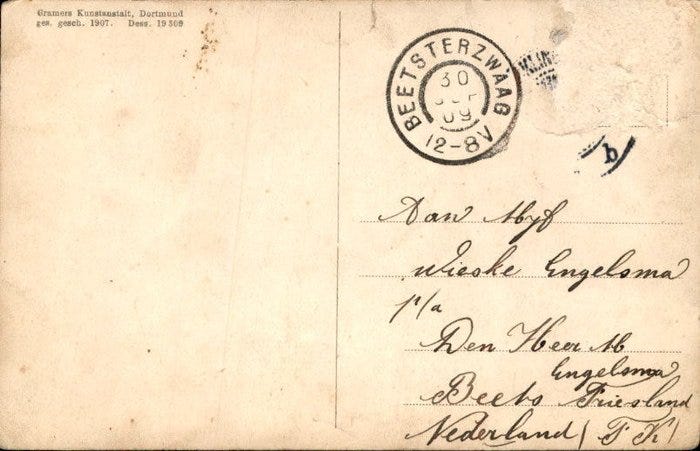 Cramers Kunstanstalt, Dortmund
ges. gesch. 1907. Dess. 19309
BEETSTERZWAAG
30
09
12-8V
b
Aan Mej
Wieske Engelsma
p/a
Den Heer M
Engelsma
Beets Friesland
Nederland (F K)